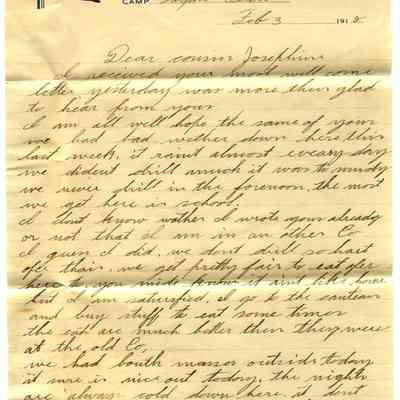 CAMP Logan Texas
Feb 3 1918
Dear cousin Josephine
I received your most well come
letter yesterday was more then glad
to hear from your
I am all well hope the same of your
we had bad wether down here this
last week, it raint almost eveary day
we dident drill much it was to mundy
we never drill in the forenoon, the most
we get here is school.
I dont know wather I wrote your already
or not that I am in an other Co
I guess I did, we dont drill so hart
ofer thair, we get pretty fair to eat ofer
here to, you mide know it aint like home
but I am satiersfied, I go to the canteen
and buy stuff to eat some times
the eat are much better then they were
at the old Co,
we had bouth mass outside today
it sure is nice out today, the nights
are always cold down here, it dont